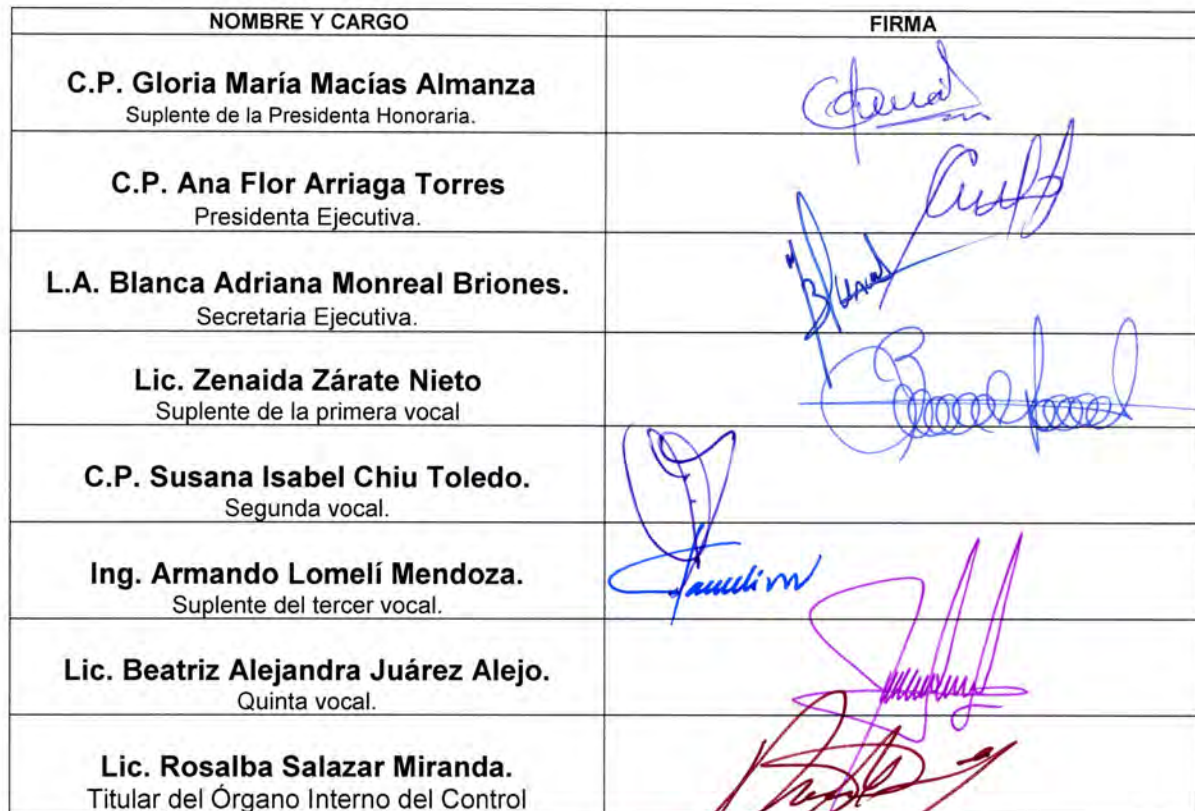 NOMBRE Y CARGO
FIRMA
C.P. Gloria María Macías Almanza
Suplente de la Presidenta Honoraria.
C.P. Ana Flor Arriaga Torres
Presidenta Ejecutiva.
L.A. Blanca Adriana Monreal Briones.
Secretaria Ejecutiva.
Lic. Zenaida Zárate Nieto
Suplente de la primera vocal
C.P. Susana Isabel Chiu Toledo.
Segunda vocal.
Ing. Armando Lomelí Mendoza.
Suplente del tercer vocal.
Lic. Beatriz Alejandra Juárez Alejo.
Quinta vocal.
Lic. Rosalba Salazar Miranda.
Titular del Órgano Interno del Control